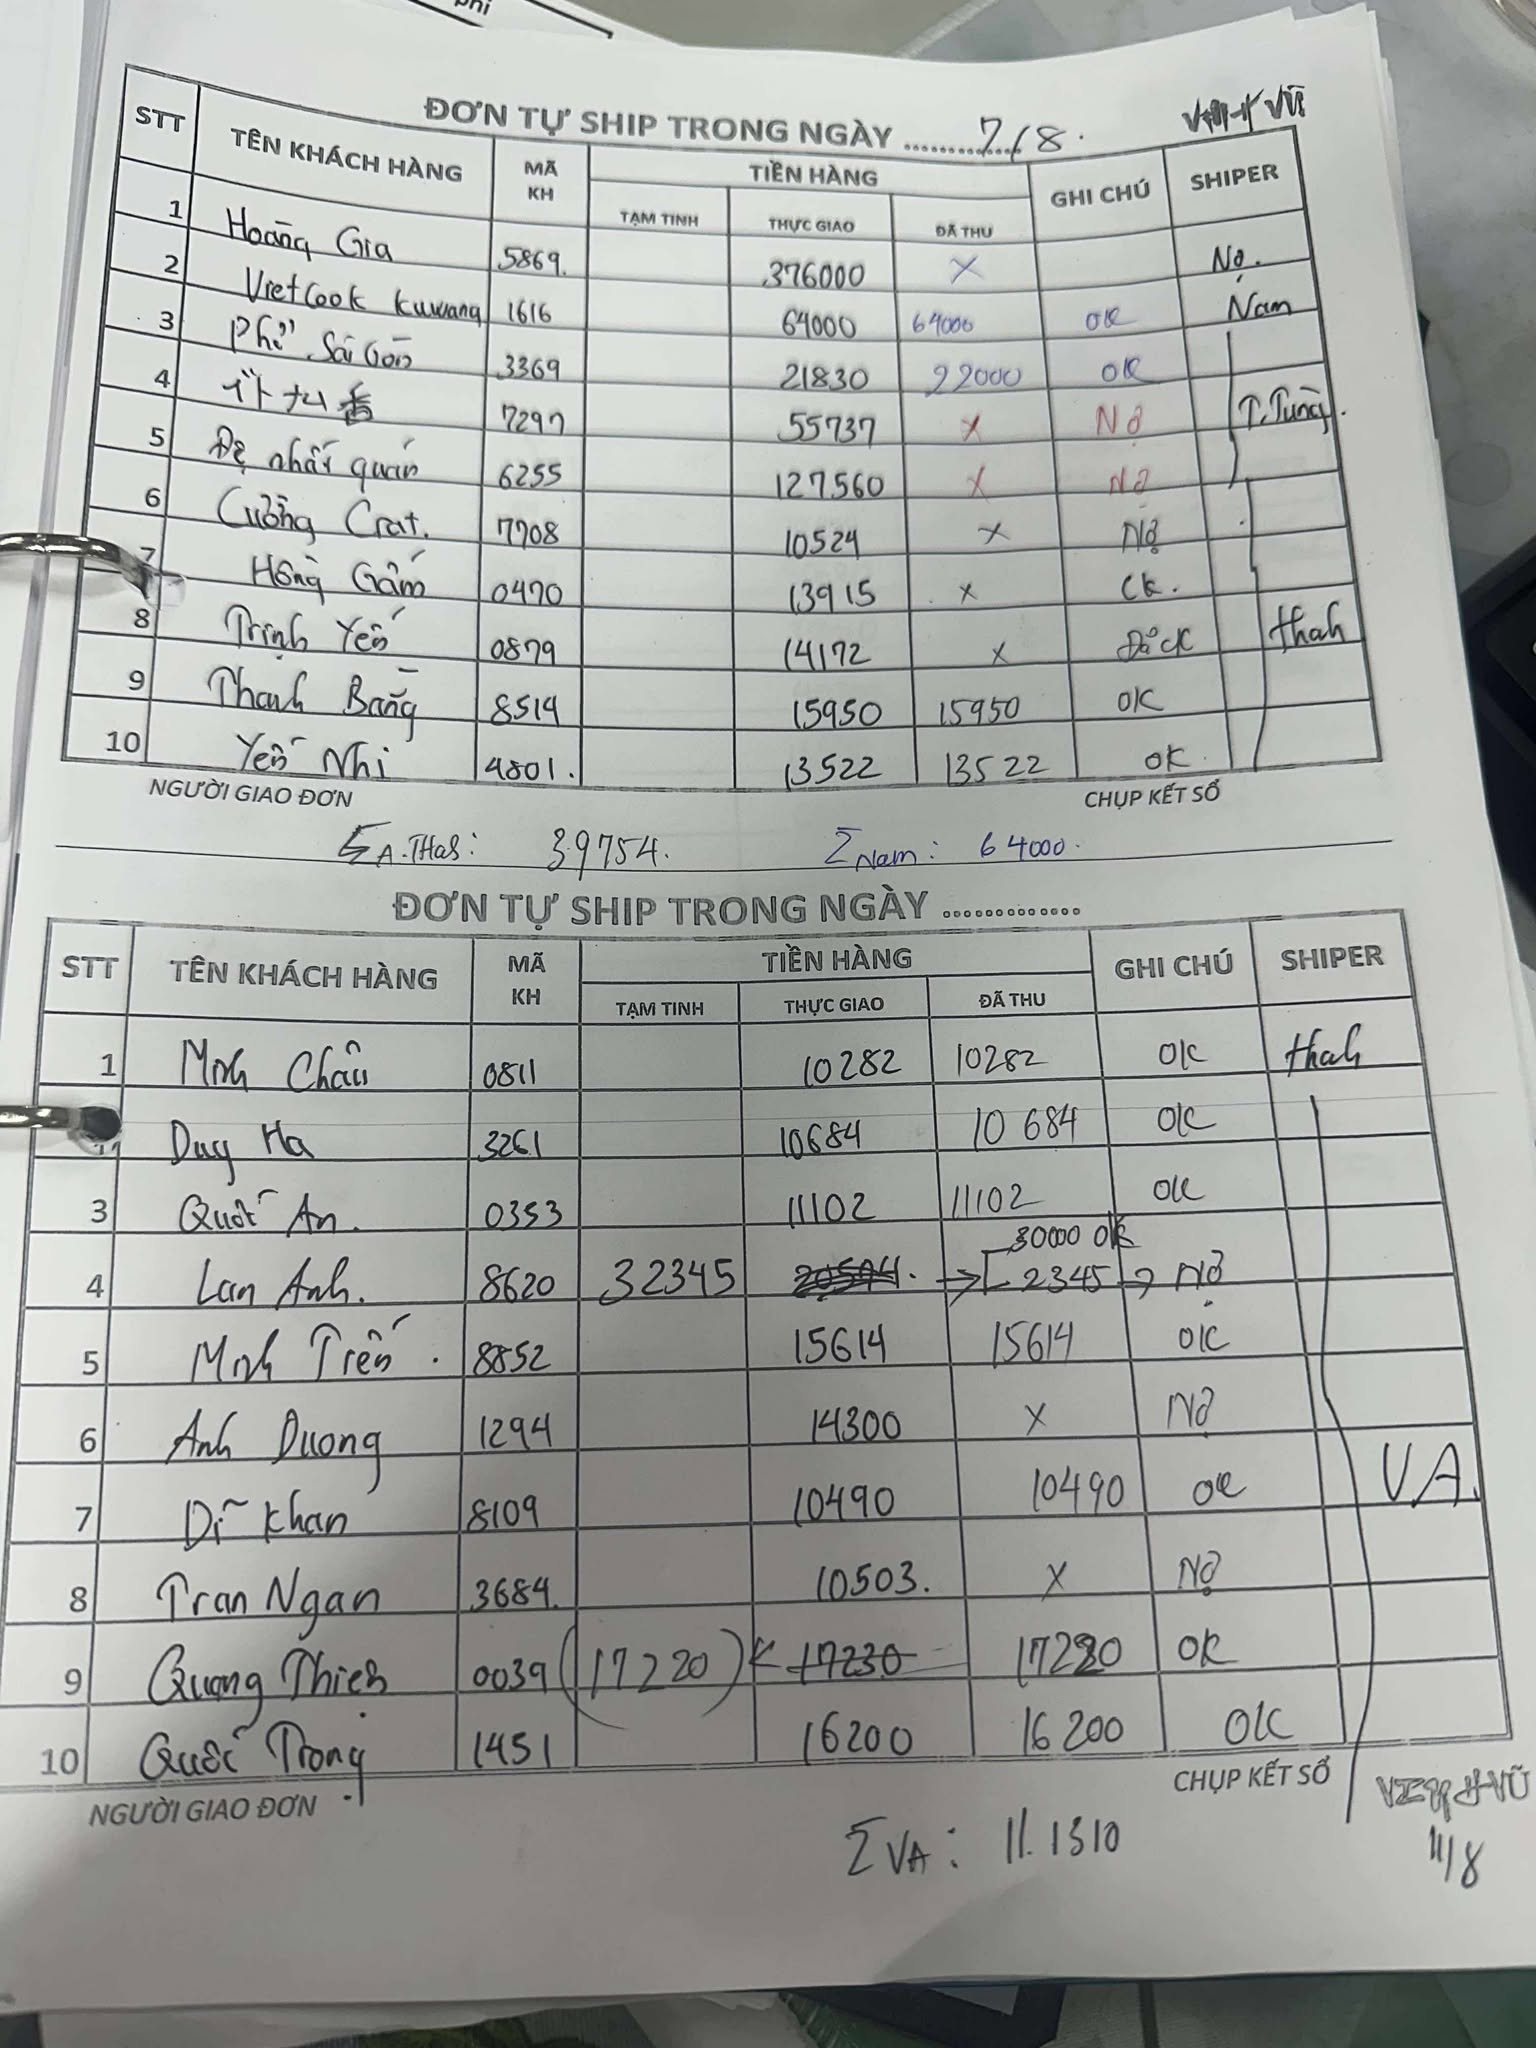 phí
ĐƠN TỰ SHIP TRONG NGÀY ............. 7/8. VŨ
STT TÊN KHÁCH HÀNG MÃ KH TIỀN HÀNG GHI CHÚ SHIPER
TẠM TINH THỰC GIAO ĐÃ THU
1 Hoàng Gia 5869. 376000 X Nợ.
2 VietCook Kuwang 1616 64000 64000 OK Nam
3 Phở Sài Gòn 3369 21830 22000 OK
4 7297 55737 X Nợ T.Tùng.
5 Đệ nhất quán 6255 127560 X Nợ
6 Cường Crat. 7708 10524 X Nợ
7 Hồng Gấm 0470 13915 X CK.
8 Trịnh Yến 0879 14172 X Đã CK thah
9 Thanh Bằng 8514 15950 15950 OK
10 Yến Nhi 4801. 13522 13522 OK.
NGƯỜI GIAO ĐƠN CHỤP KẾT SỔ
Σ A.THah: 39754. Σ Nam: 64000.
ĐƠN TỰ SHIP TRONG NGÀY .............
STT TÊN KHÁCH HÀNG MÃ KH TIỀN HÀNG GHI CHÚ SHIPER
TẠM TINH THỰC GIAO ĐÃ THU
1 Minh Châu 0811 10282 10282 OK thah
Duy Ha 3261 10684 10 684 OK
3 Quốc An. 0353 11102 11102 OK
30000 OK
4 Lan Anh. 8620 32345 20594. → 2345 → Nợ
5 Minh Triến. 8852 15614 15614 OK
6 Anh Duong 1294 14300 X Nợ
7 Dĩ Khan 8109 10490 10490 OK VA.
8 Tran Ngan 3684. 10503. X Nợ
9 Quang Thiện 0039 (17220) 17230 17220 OK
10 Quốc Trọng 1451 16200 16 200 OK
NGƯỜI GIAO ĐƠN CHỤP KẾT SỔ
Σ VA: 11.1310 VŨ
11/8